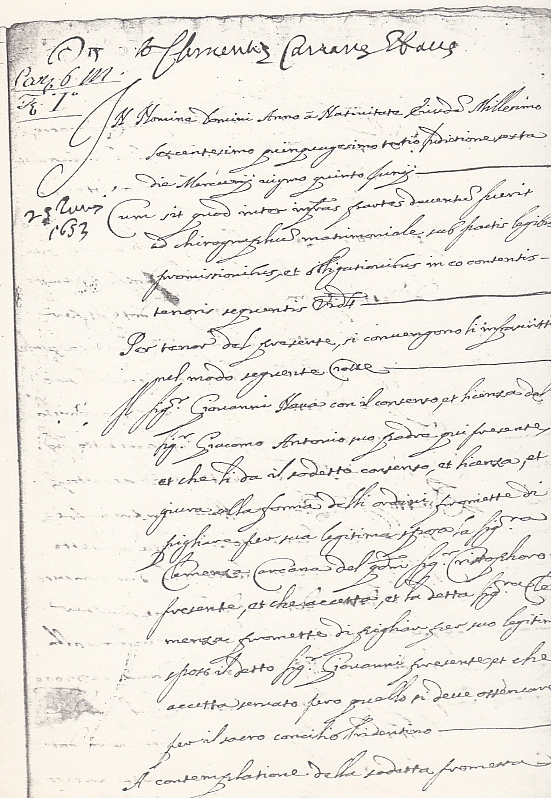 Clementis Carcane
Car. 6 III.
1°
In Nomine Domini Anno a Nativitate Eiusdem Millesimo
sexcentesimo quinquagesimo tertio Inditione sexta
die Mercurij vigesimo quinto Junij
25 Junij
1653
Cum sit quod inter infras partes deventum fuerit
ad chirographum matrimoniale sub pactis legibus
promissionibus, et obligationibus in eo contentis
tenoris sequentis
Per tenor del presente, si convengono li infrascritti
nel modo seguente Cioè
Il Sig.r Giovanni Nava con il consenso, et licenza del
Sig.r Giacomo Antonio suo padre qui presente,
et che li da il sodetto consenso, et licenza, et
giura alla forma delli ordini promette di
pigliare per sua legitima sposa la Sig.ra
Clemenza Carcana del qdm Sig.r Cristophoro
presente, et che accetta, et la detta Sig.ra Cle
menza promette di pigliar per suo legitim
sposo il detto Sig.r Giovanni presente, et che
accetta servato pero quello si deve osservare
per il sacro concilio Tridentino
A contemplatione della sodetta promessa